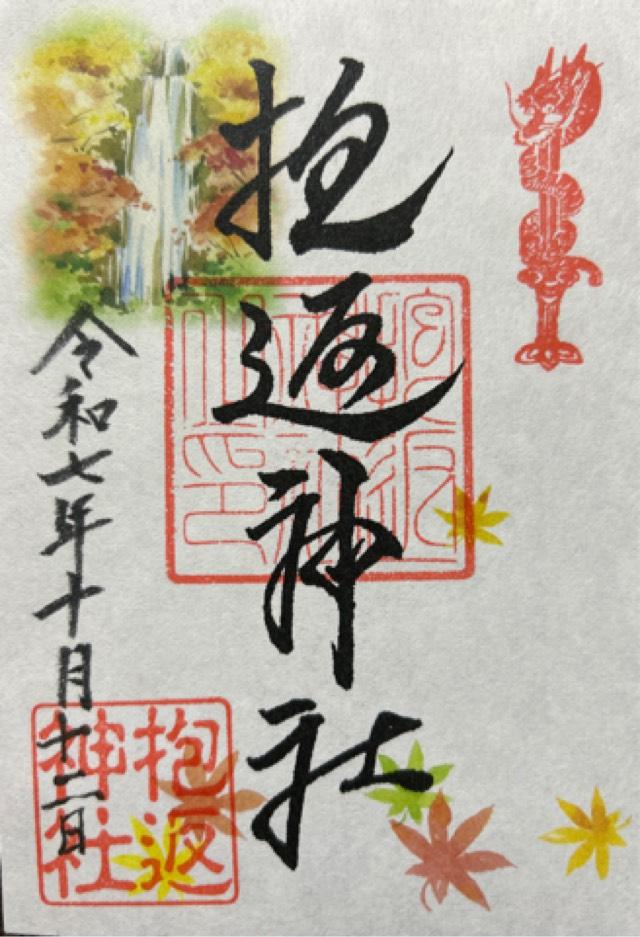 抱返神社
令和七年十月十二日
抱返
神社